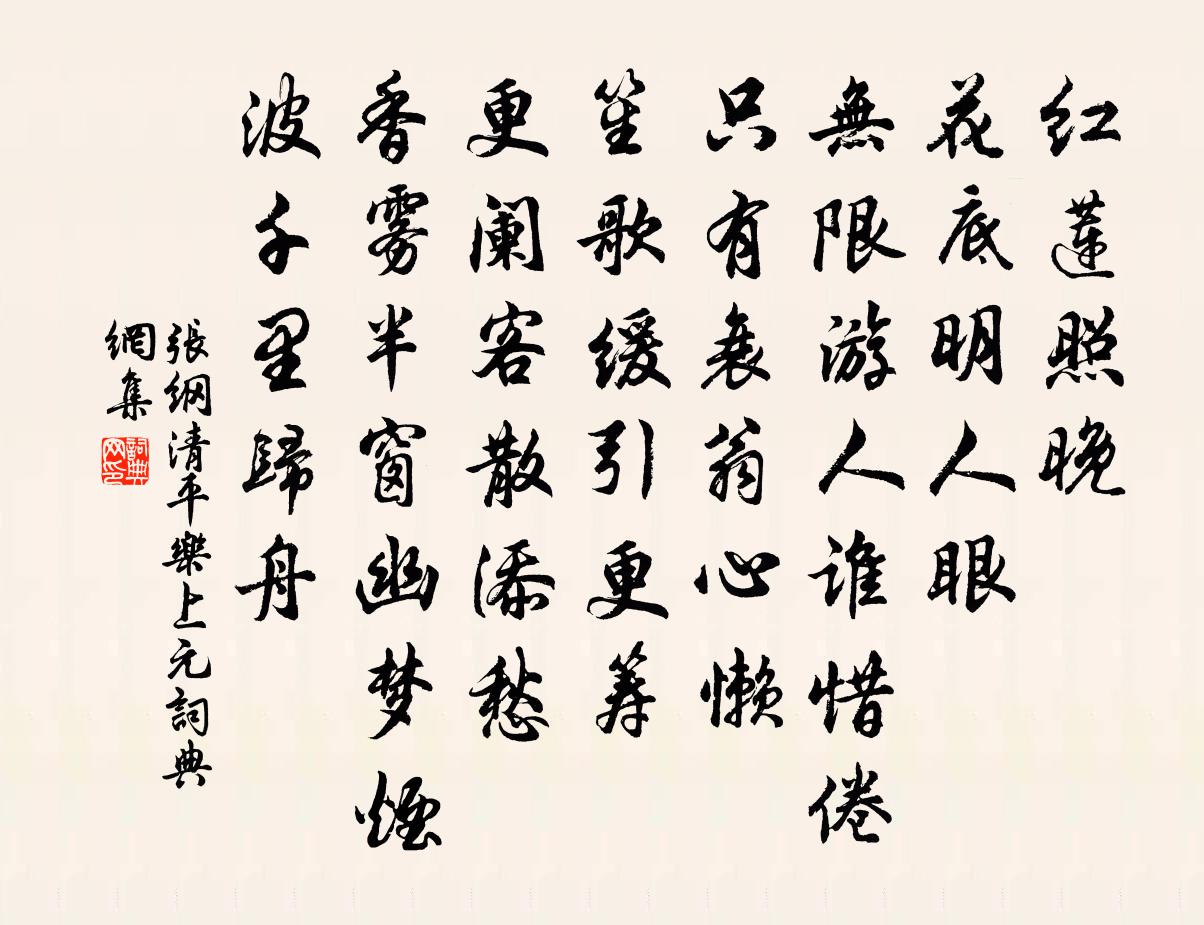 红蓮照晚
花底明人眼
無限游人谁惜倦
只有衰翁心懒
笙歌缓引更筹
更阑客散添愁
香雾半窗幽梦煙
波千里歸舟
張纲清平樂上元詞典
網集
詞典網印